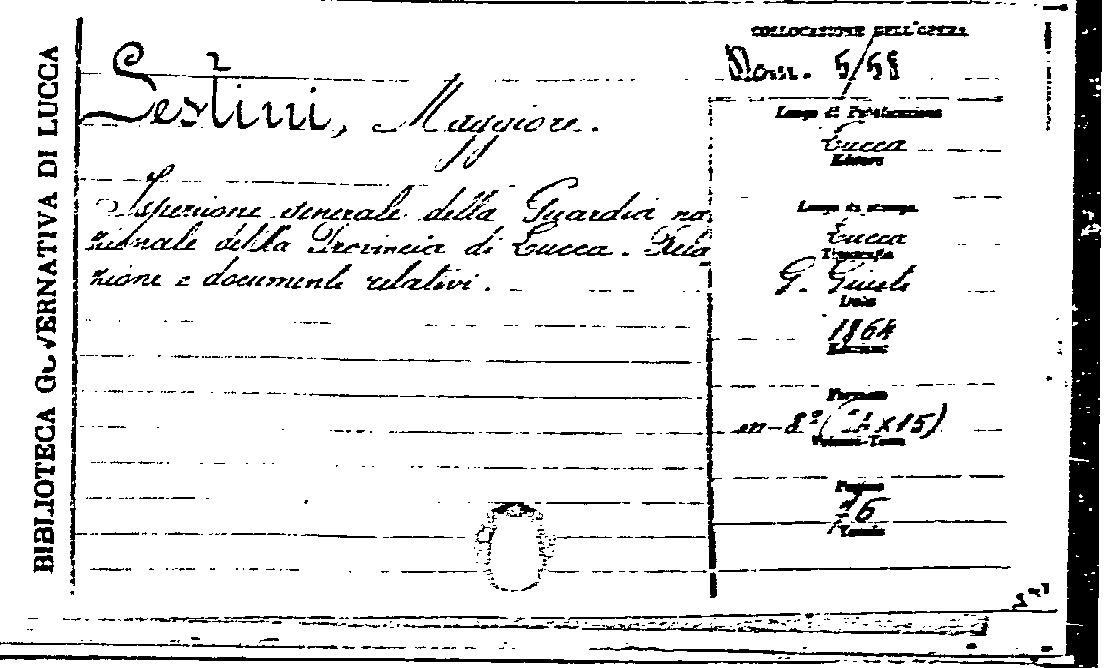 BIBLIOTECA GOVERNATIVA DI LUCCA
Sestini, Maggiore.
Ispezione generale della Guardia na
zionale della Provincia di Lucca. Rela
zione e documenti relativi.
COLLOCAZIONE DELL'OPERA
5/58
Luogo di Pubblicazione
Lucca
Editore
Luogo di stampa
Lucca
Tipografia
G. Giusti
Data
1864
Edizione
Formato
in-8º ( x15)
Volumi-Tomi
Pagine
Tavole